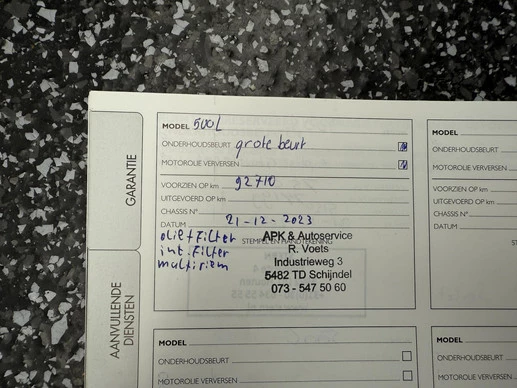 GARANTIE
AANVULLENDE
DIENSTEN
MODEL 500L
ONDERHOUDSBEURT grote beurt
MOTOROLIE VERVERSEN
VOORZIEN OP km 92710
UITGEVOERD OP km
CHASSIS N°
DATUM 21-12-2023
STEMPEL EN HANDTEKENING
olie + Filter
int. Filter
multiriem
APK & Autoservice
R. Voets
Industrieweg 3
5482 TD Schijndel
073 - 547 50 60
MODEL
ONDERHOUDSBEURT
MOTOROLIE VERVERSEN
MODEL
ONDERHOUDSBEURT
MOTOROLIE VERVERSEN
VOORZIEN OP km
UITGEVOERD OP km
CHASSIS N°
DATUM
MODEL
ONDERHOUDSBEURT
MOTOROLIE VERVERSEN